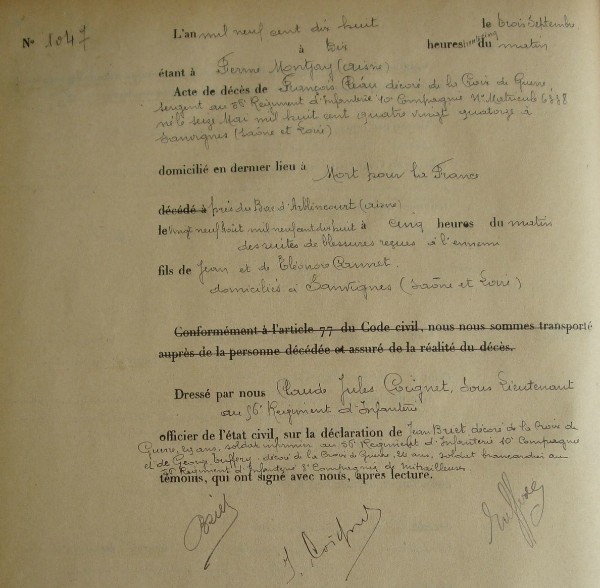 N° 1047
L'an mil neuf cent dix huit le trois Septembre
à dix heures du matin
étant à Ferme Montjay (Aisne)
Acte de décès de François décoré de la Croix de Guerre,
sergent au 56e Régiment d'Infanterie 10e Compagnie N° Matricule
né le seize Mai mil huit cent quatre vingt quatorze à
Sanvignes (Saône et Loire)
domicilié en dernier lieu à Mort pour la France
décédé à près du Bois d'Arblincourt (Aisne)
le vingt neuf Août mil neuf cent dix huit à cinq heures du matin
des suites de blessures reçues à l'ennemi
fils de Jean et de Eléonore
domiciliés à Sanvignes (Saône et Loire)
Conformément à l'article 77 du Code civil, nous nous sommes transporté
auprès de la personne décédée et assuré de la réalité du décès.
Dressé par nous Claude Jules Coignet, Sous Lieutenant
au 56e Régiment d'Infanterie
officier de l'état civil, sur la déclaration de Jean Briet décoré de la Croix de
Guerre, ans, soldat infirmier au 56e Régiment d'Infanterie 10e Compagnie
et de Georges décoré de la Croix de Guerre, ans, soldat brancardier au
56e Régiment d'Infanterie 3e Compagnie de Mitrailleuses
témoins, qui ont signé avec nous, après lecture.
Briet
J. Coignet